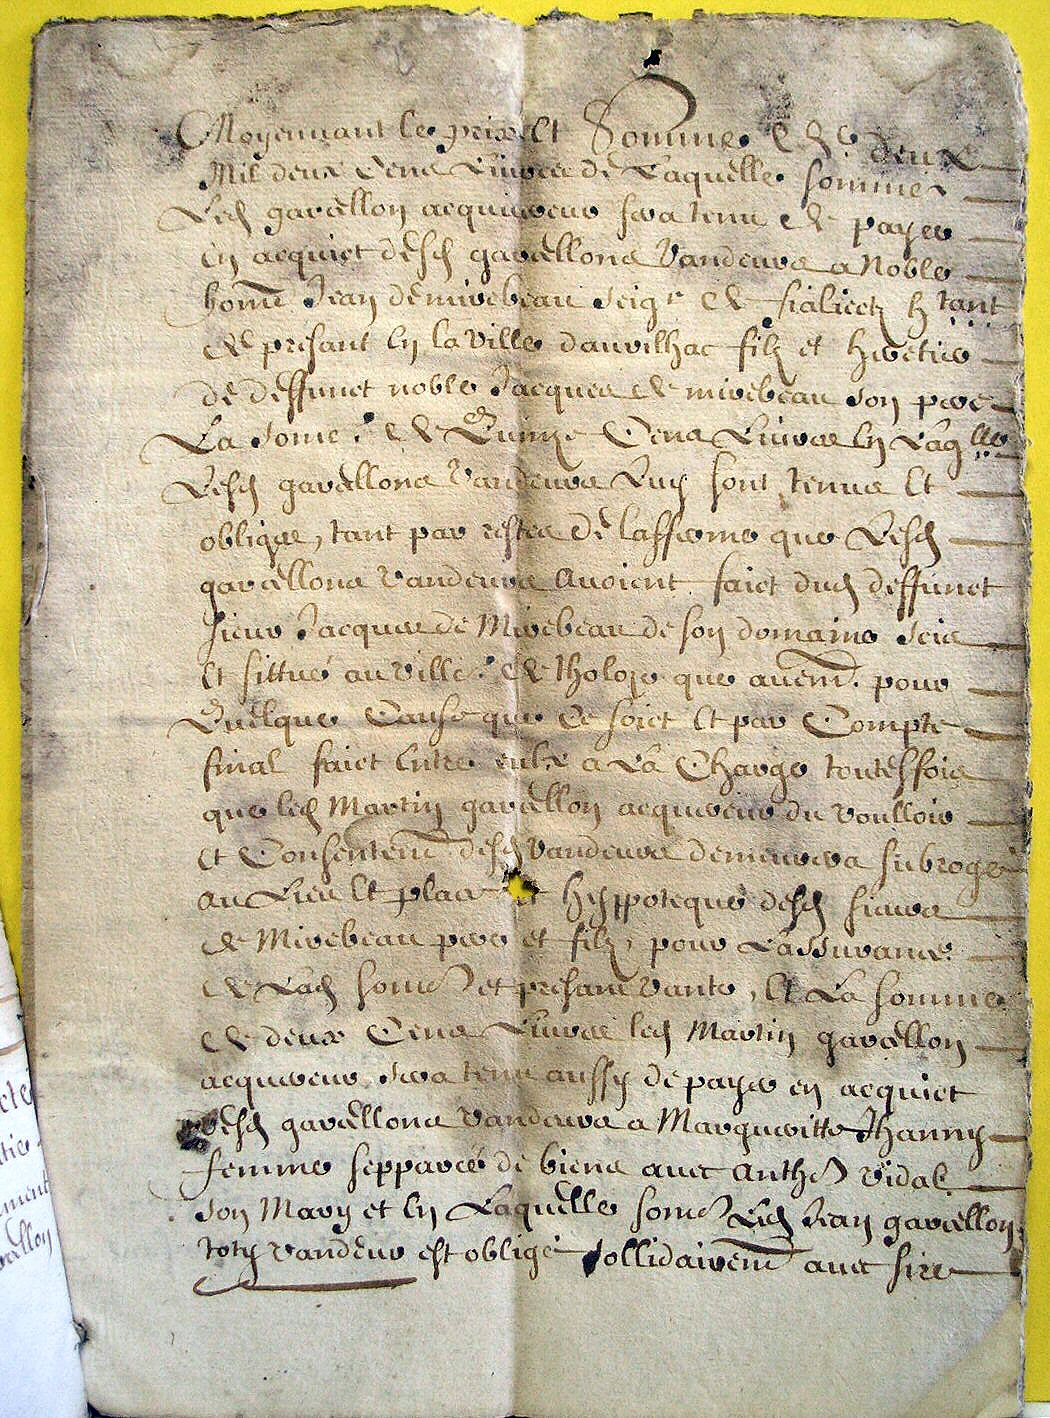 Moyennant le prix et Somme de deux
Mil deux Cens Livres de Laquelle somme
Led gavellon acquireur sera tenu de payer
en acquict desd gavellons vandeurs a Noble
homē Jean de mirebeau seigr de fialicetz h tant
de presant en la ville dauvilhac filz et hretier
de deffunct noble Jacques de mirebeau son pere
La some de Quinze Cens Livres en Laqlle
Lesd gavellons vandeurs Luy sont tenus et
obliges, tant par restes de lafferme que Lesd
gavellons vandeurs avoient faict dud deffunct
sieur Jacques de Mirebeau de son domaine scis
et sittué au ville. de tholoze que autremt. pour
Quelque Cause que Ce soict et par Compte
final faict entre eulx a La Charge touteffois
que led Martin gavellon acquireur du voulloir
et Consentemt desd vandeurs demeurera subrogé
au Lieu et place et hyppoteque desd sieurs
de Mirebeau pere et filz, pour Lassurance
de Lad some et presant vante, et La somme
de deux Cens Livres led Martin gavellon
acquireur sera tenu aussy de payer en acquict
desd gavellons vandeurs a Margueritte Jhanny
femme sepparée de biens avec Anthe vidal
son Mary et en Laquelle some Led Jean gavellon
vandeur est obligé sollidairemt avec sire